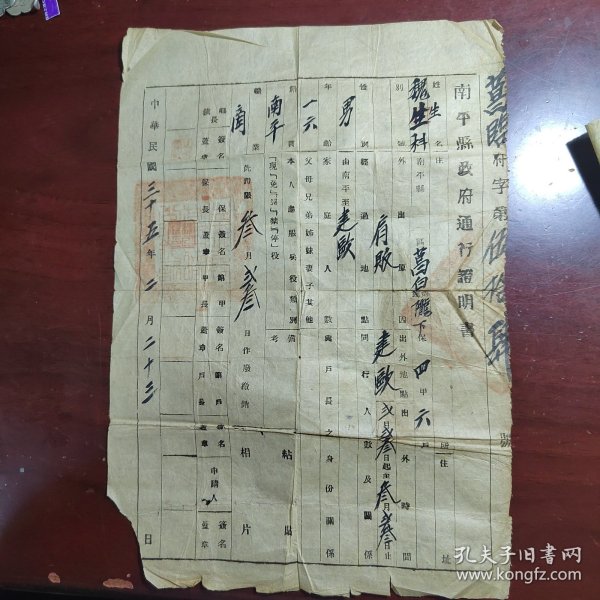 南平縣政府通行證明書
字第伍拾 號
姓名 住址
魏生科
南平縣 區 保四甲六戶
性別 外出原因 出外地點 出外時間
男 販 建歐 弍月 日起至叁月 日止
經過地點 同行人數及關係
由南平至建歐
年齡 家庭人數 與戶長之身份關係
一六 父母兄弟姊妹妻子其他
籍貫 本人應服兵役類別 備考
南平 現『免』『緩』『禁』『停』役
職業 此證限叁月弍叁日作廢繳銷
商
粘貼相片
鎮長簽名蓋章 保長簽名蓋章 甲長簽名蓋章 戶長簽名蓋章 申請人簽名蓋章
中華民國三十五年二月二十三日
孔夫子旧書网
www.kongfz.com